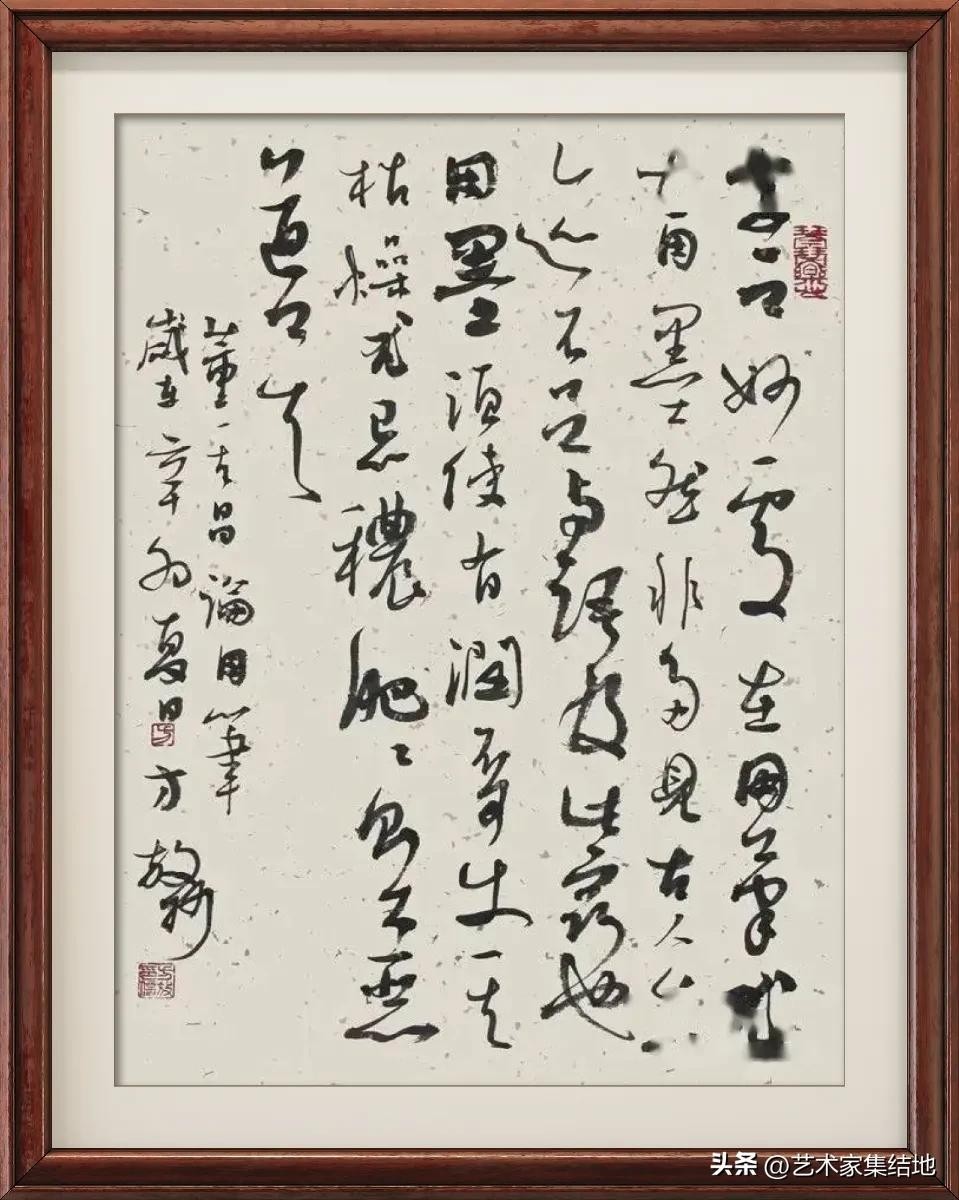 妙處在用筆
用墨然非多見古人
迹不足与語此竅也
用墨須使有潤不可使其
枯燥尤忌穠肥〻則大惡
道矣
董其昌論用筆
歲在辛丑夏日 方
头条 @艺术家集结地